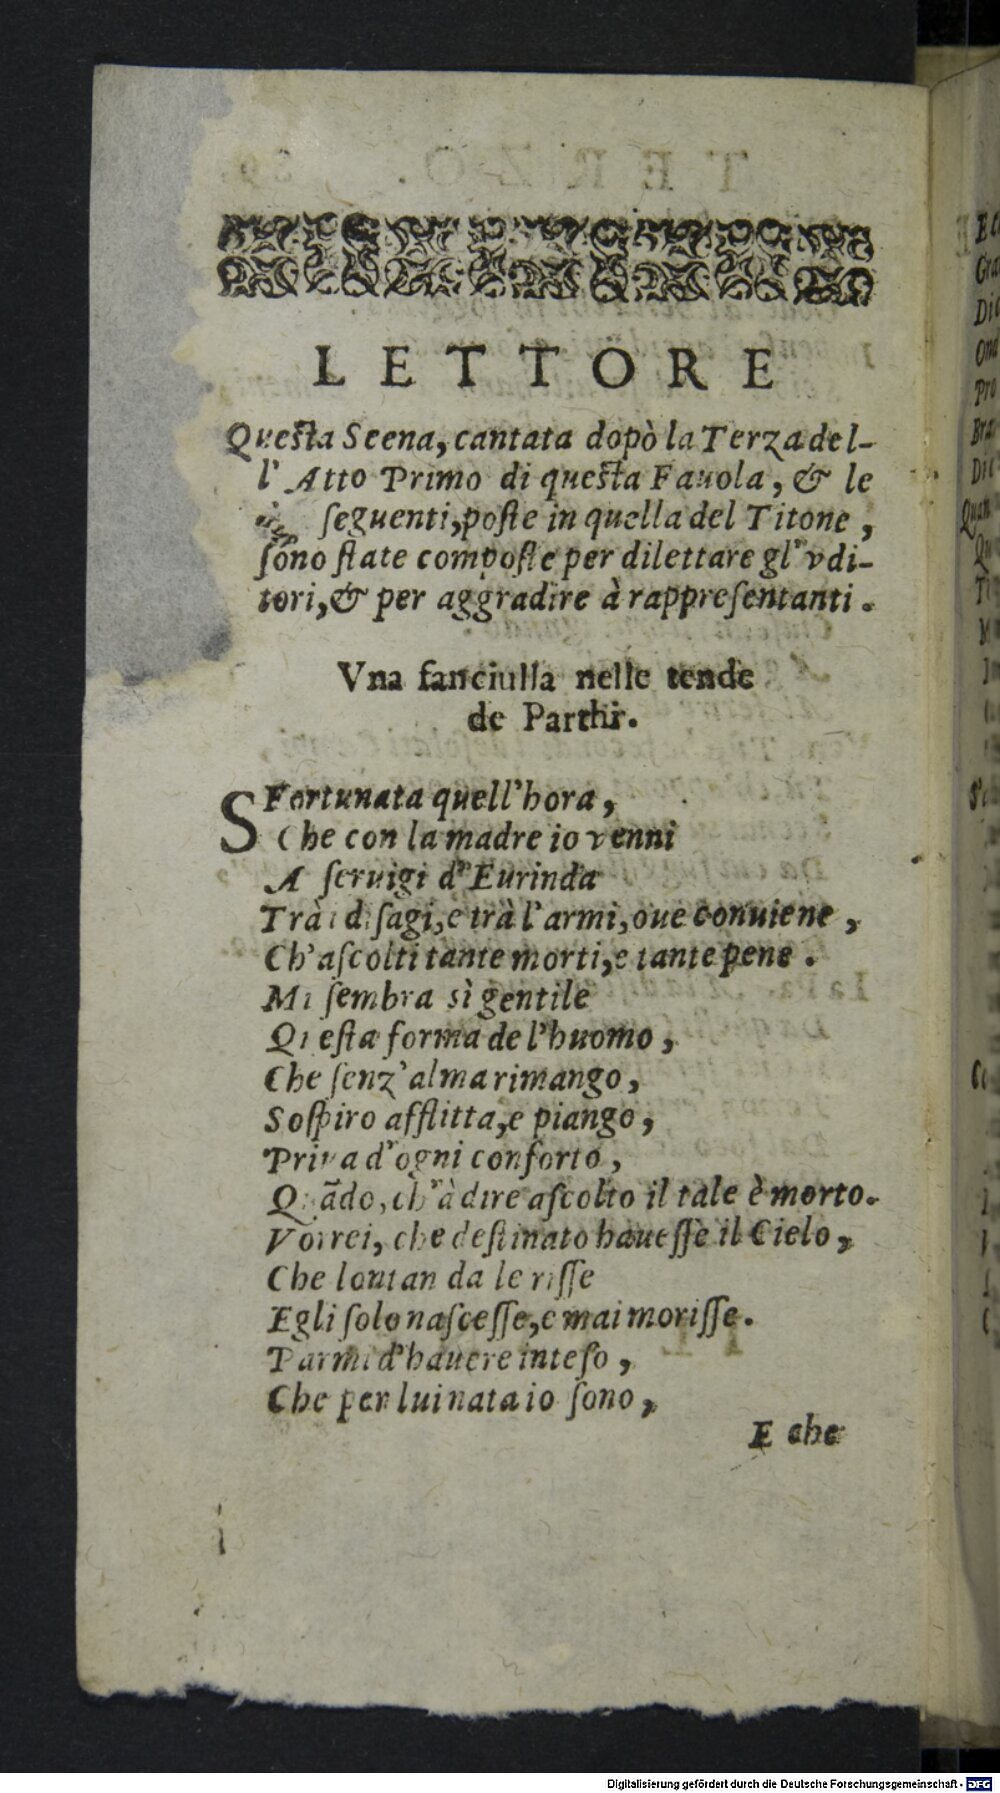 LETTORE
Questa Scena, cantata dopò la Terza del-
l' Atto Primo di questa Fauola, & le
seguenti, poste in quella del Titone,
sono state composte per dilettare gl' vdi-
tori, & per aggradire à rappresentanti.
Vna fanciulla nelle tende
de Parthi.
SFortunata quell'hora,
Che con la madre io venni
A seruigi d'Eurinda
Trà i disagi, e trà l'armi, oue conuiene,
Ch'ascolti tante morti, e tante pene.
Mi sembra sì gentile
Questa forma de l'huomo,
Che senz'alma rimango,
Sospiro afflitta, e piango,
Priua d'ogni conforto,
Quãdo, ch'à dire ascolto il tale è morto.
Vorrei, che destinato hauesse il Cielo,
Che lontan da le risse
Egli solo nascesse, e mai morisse.
Parmi d'hauere inteso,
Che per lui nata io sono,
E che
Digitalisierung gefördert durch die Deutsche Forschungsgemeinschaft - DFG